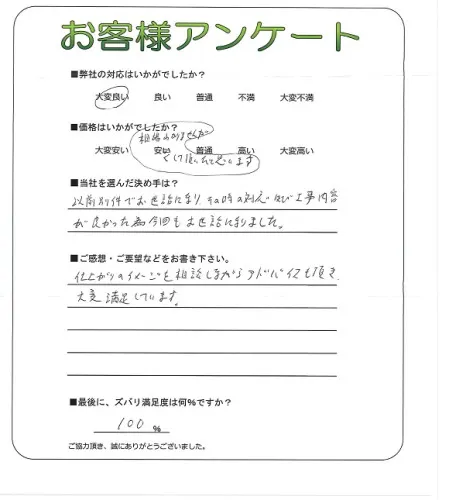 お客様アンケート
■弊社の対応はいかがでしたか？
大変良い 良い 普通 不満 大変不満
■価格はいかがでしたか？
相場わかりませんが
大変安い 安い 普通 高い 大変高い
して頂いたと思います
■当社を選んだ決め手は？
以前別件でお世話になり、その時の対応及び工事内容
が良かった為今回もお世話になりました。
■ご感想・ご要望などをお書き下さい。
仕上がりのイメージを相談しながらアドバイスも頂き
大変満足しています。
■最後に、ズバリ満足度は何％ですか？
100 %
ご協力頂き、誠にありがとうございました。